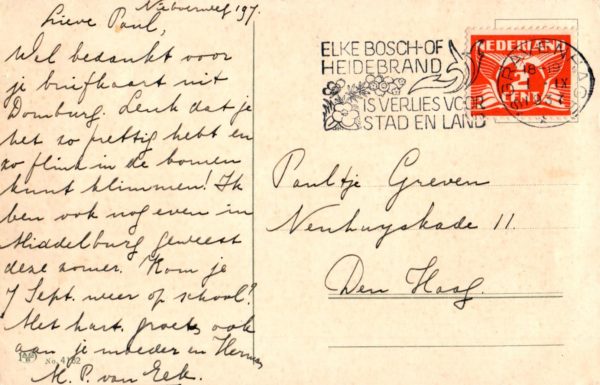 Lieve Paul,
Wel bedankt voor
je briefkaart uit
Domburg. Leuk dat je
het zo prettig hebt en
zo flink in de bomen
kunt klimmen! Ik
ben ook nog even in
Middelburg geweest
deze zomer. Kom je
7 Sept. weer op school?
Met hart. groeten ook
aan je moeder en Herman
M. P. van Eek.
No. 4182
ELKE BOSCH- OF
HEIDEBRAND
IS VERLIES VOOR
STAD EN LAND
NEDERLAND
2
CENT
Paultje Greven
Nenhuyskade 11.
Den Haag.